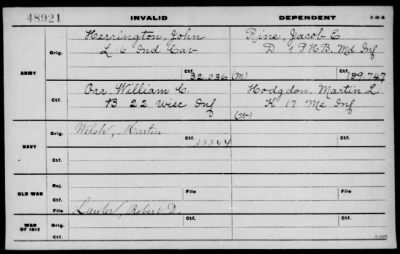 48921 INVALID DEPENDENT
Herrington, John Rine, Jacob E
Orig. L 6 Ind Cav D 1 P.H.B. Md Inf
ARMY Ctf. 32,036 (M) Ctf. 189,747
Orr, William C. Hodgdon, Martin L
Ctf. B 22 Wisc Inf K 17 Me Inf
(W)
Orig. Welsh, Martin Ctf.
NAVY
Ctf.
Rej.
OLD WAR Ctf. File
File Lawler, Robert D.
WAR OF 1812 Orig. Ctf.
Ctf. File